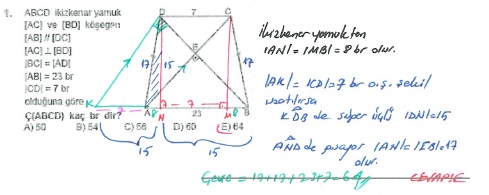 1. ABCD ikizkenar yamuk
[AC] ve [BD] köşegen
[AB] // [DC]
[AC] ⊥ [BD]
|BC| = |AD|
|AB| = 23 br
|CD| = 7 br
olduğuna göre
Ç(ABCD) kaç br dir?
A) 50 B) 54 C) 56 D) 60 E) 64
D 7 C
17 15 E 17
K 7 A 8 N 7 M 8 B
23
15 15
ikizkenar yamuktan
|AN| = |MB| = 8 br olur.
|AK| = |CD| = 7 br
KDB de |DN| = 15
AND de
olur.
Çevre = 17+17+23+7 = 64
CEVAP E